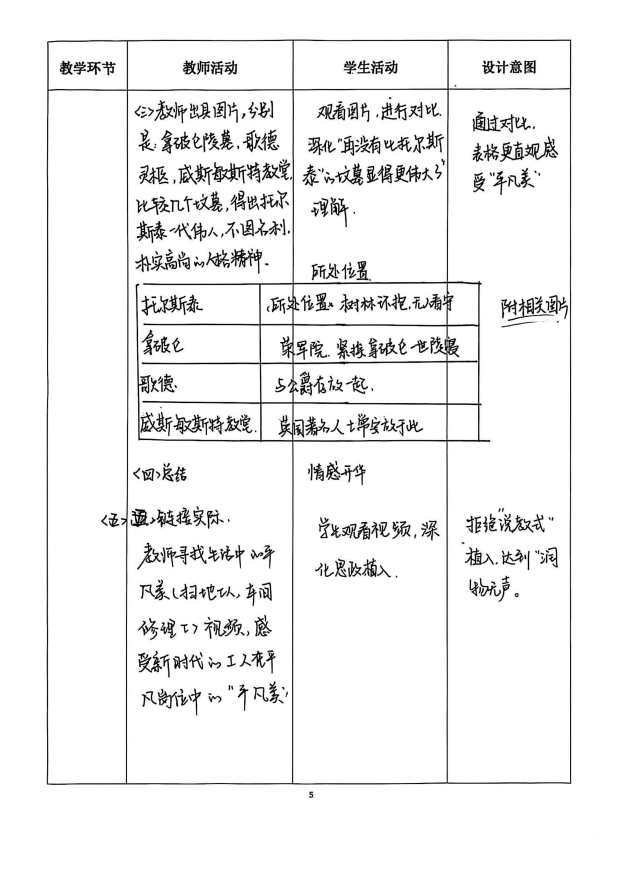 教学环节 教师活动 学生活动 设计意图
<三>教师出具图片，分别
是：拿破仑陵墓，歌德
灵柩，威斯敏斯特教堂
比较几个坟墓，得出托尔
斯泰一代伟人，不图名利，
朴实高尚的人格精神．
观看图片，进行对比．
深化"再没有比托尔斯
泰"的坟墓显得更伟大了
理解．
通过对比，
表格更直观感
受"平凡美"
所处位置
托尔斯泰 所处位置 树林环抱，无人看守
拿破仑 荣军院．紧挨拿破仑一世陵寝
歌德 与公爵存放一起．
威斯敏斯特教堂． 英国著名人士常安放于此
附相关图片
<四>总结
情感升华
<五> 链接实际．
教师寻找生活中的平
凡美（扫地工人，车间
修理工）视频，感
受新时代的工人在平
凡岗位中的"平凡美"
学生观看视频，深
化思政植入．
拒绝"说教式"
植入，达到"润
物无声。
5